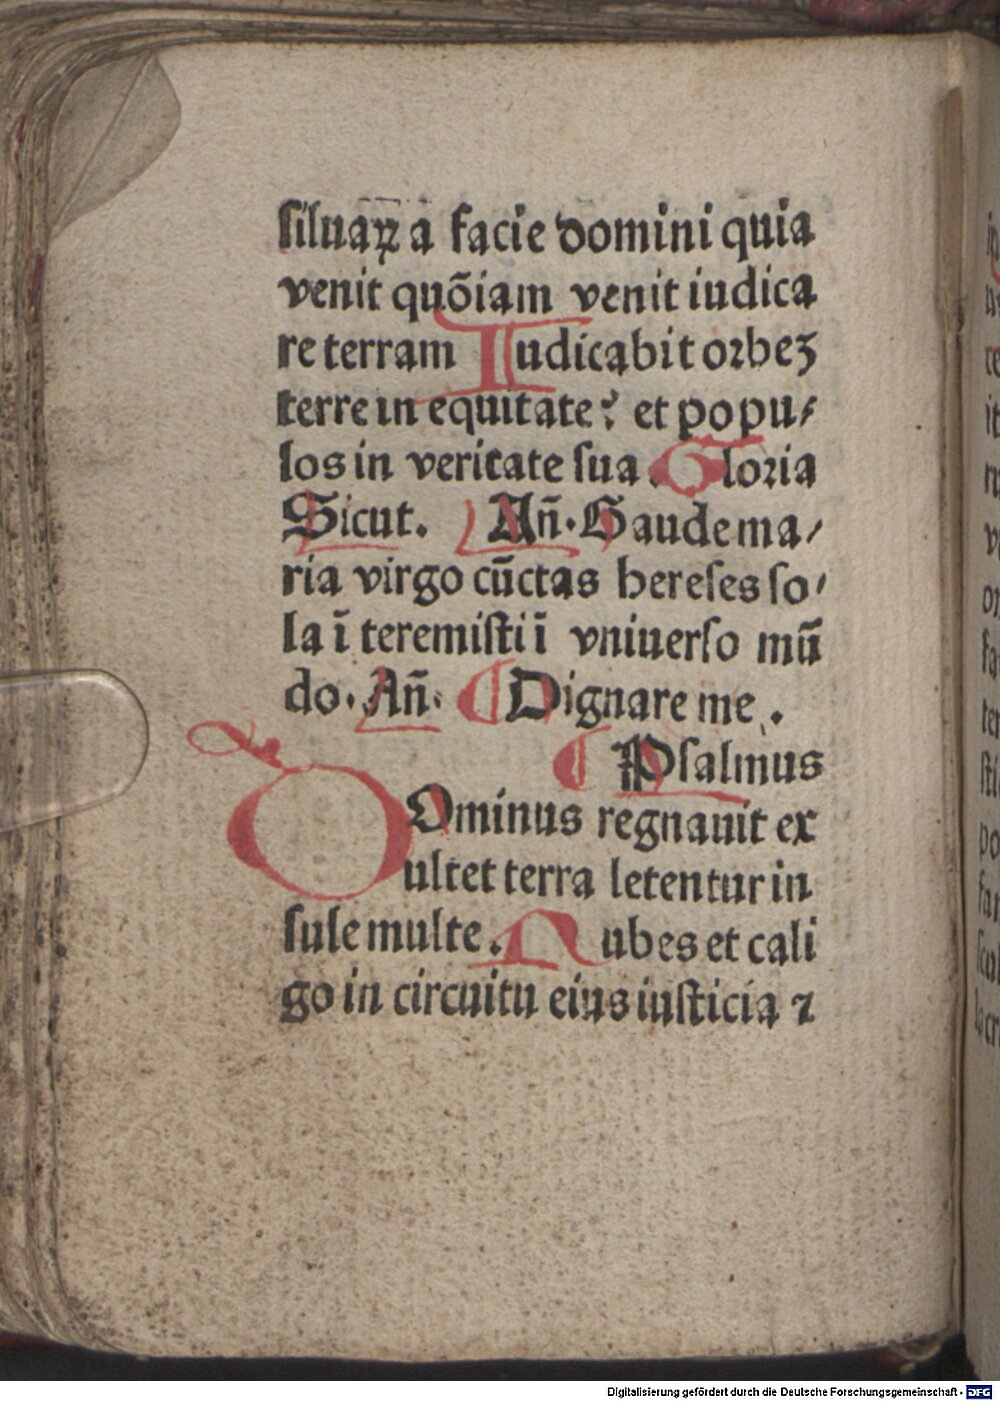 siluaꝝ a facie domini quia
venit quõiam venit iudica
re terram Iudicabit orbeꝫ
terre in equitate: et popu⸗
los in veritate sua. Gloria
Sicut. Añ. Gaude ma⸗
ria virgo cūctas hereses so⸗
la ī teremisti ī vniuerso mū
do. Añ. Dignare me.
Psalmus
DOminus regnauit ex
ultet terra letentur in
sule multe. Nubes et cali
go in circuitu eius iusticia ⁊
Digitalisierung gefördert durch die Deutsche Forschungsgemeinschaft - DFG